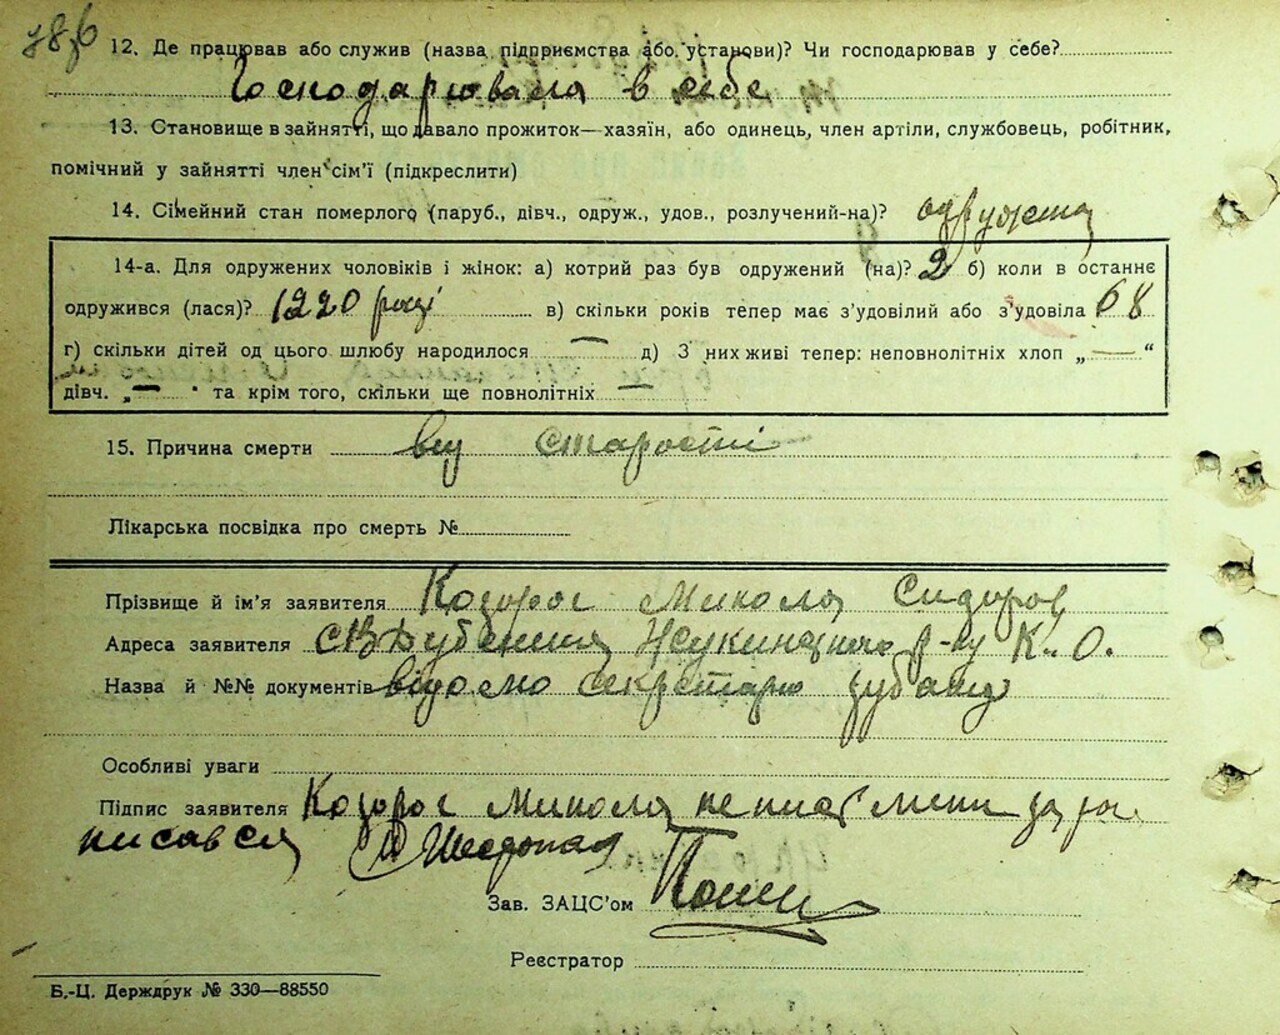 12. Де працював або служив (назва підприємства або установи)? Чи господарював у себе?
Господарювала в себе
13. Становище в зайнятті, що давало прожиток—хазяїн, або одинець, член артілі, службовець, робітник,
помічний у зайнятті член сім'ї (підкреслити)
14. Сімейний стан померлого (паруб., дівч., одруж., удов., розлучений-на)? одружена
14-а. Для одружених чоловіків і жінок: а) котрий раз був одружений (на)? 2 б) коли в останнє
одружився (лася)? 1220 році в) скільки років тепер має з'удовілий або з'удовіла 68
г) скільки дітей од цього шлюбу народилося — д) З них живі тепер: неповнолітніх хлоп „—“
дівч. „— " та крім того, скільки ще повнолітніх —
15. Причина смерти від старості
Лікарська посвідка про смерть №
Прізвище й ім'я заявителя Козорог Микола Сидоров
Адреса заявителя Жукинського р-ну К. О.
Назва й №№ документів відомо секретарю
Особливі уваги
Підпис заявителя Козорог Микола неписьмени за рос
писався
Зав. ЗАЦС'ом
Реєстратор
Б.-Ц. Держдрук № 330—88550